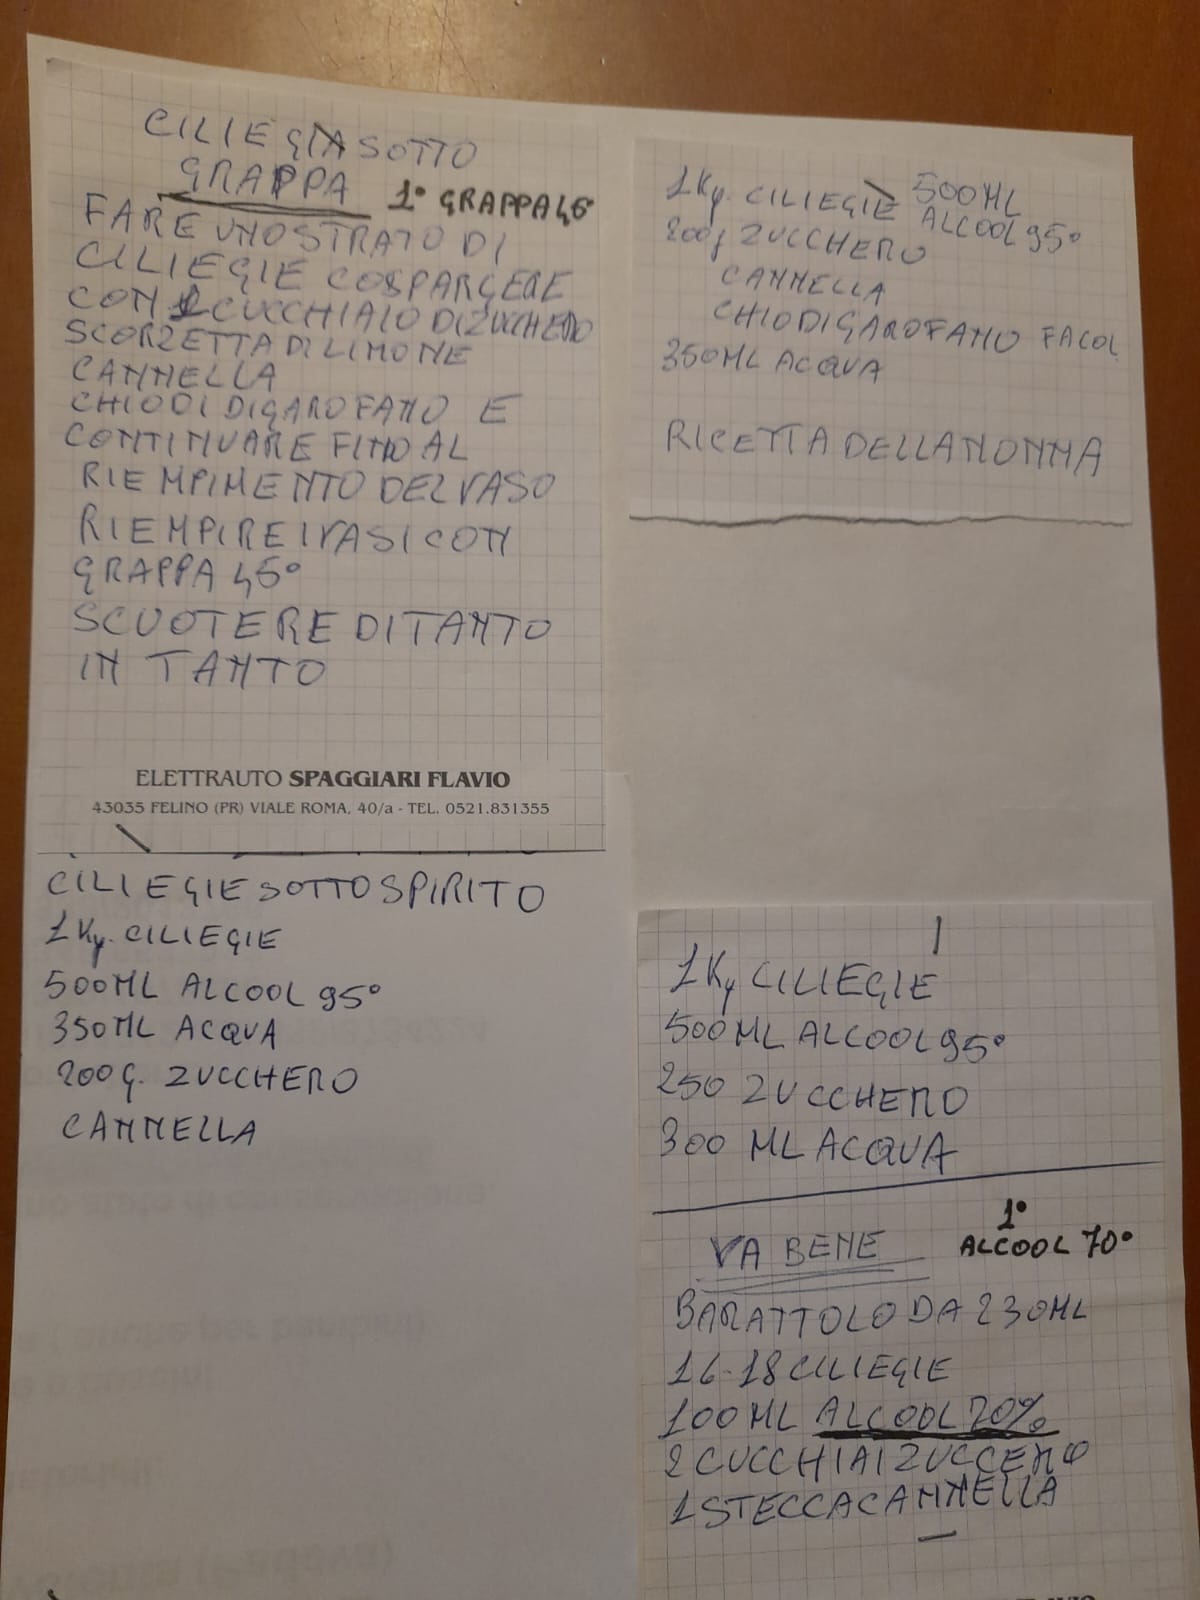 CILIEGIA SOTTO
GRAPPA 1° GRAPPA 45°
FARE UNO STRATO DI
CILIEGIE COSPARGERE
CON 1 CUCCHIAIO DI ZUCCHERO
SCORZETTA DI LIMONE
CANNELLA
CHIODI DI GAROFANO E
CONTINUARE FINO AL
RIEMPIMENTO DEL VASO
RIEMPIRE I VASI CON
GRAPPA 45°
SCUOTERE DI TANTO
IN TANTO
ELETTRAUTO SPAGGIARI FLAVIO
43035 FELINO (PR) VIALE ROMA, 40/a - TEL. 0521.831355
CILIEGIE SOTTO SPIRITO
1 Kg. CILIEGIE
500ML ALCOOL 95°
350ML ACQUA
200 G. ZUCCHERO
CANNELLA
1Kg. CILIEGIE 500ML
ALCOOL 95°
200g ZUCCHERO
CANNELLA
CHIODI GAROFANO FACOL
350ML ACQUA
RICETTA DELLA NONNA
1Kg CILIEGIE
500 ML ALCOOL 95°
250 ZUCCHERO
300 ML ACQUA
VA BENE 1°
ALCOOL 70°
BARATTOLO DA 230ML
16-18 CILIEGIE
100ML ALCOOL 70%
2 CUCCHIAI ZUCCERO
1 STECCA CANNELLA